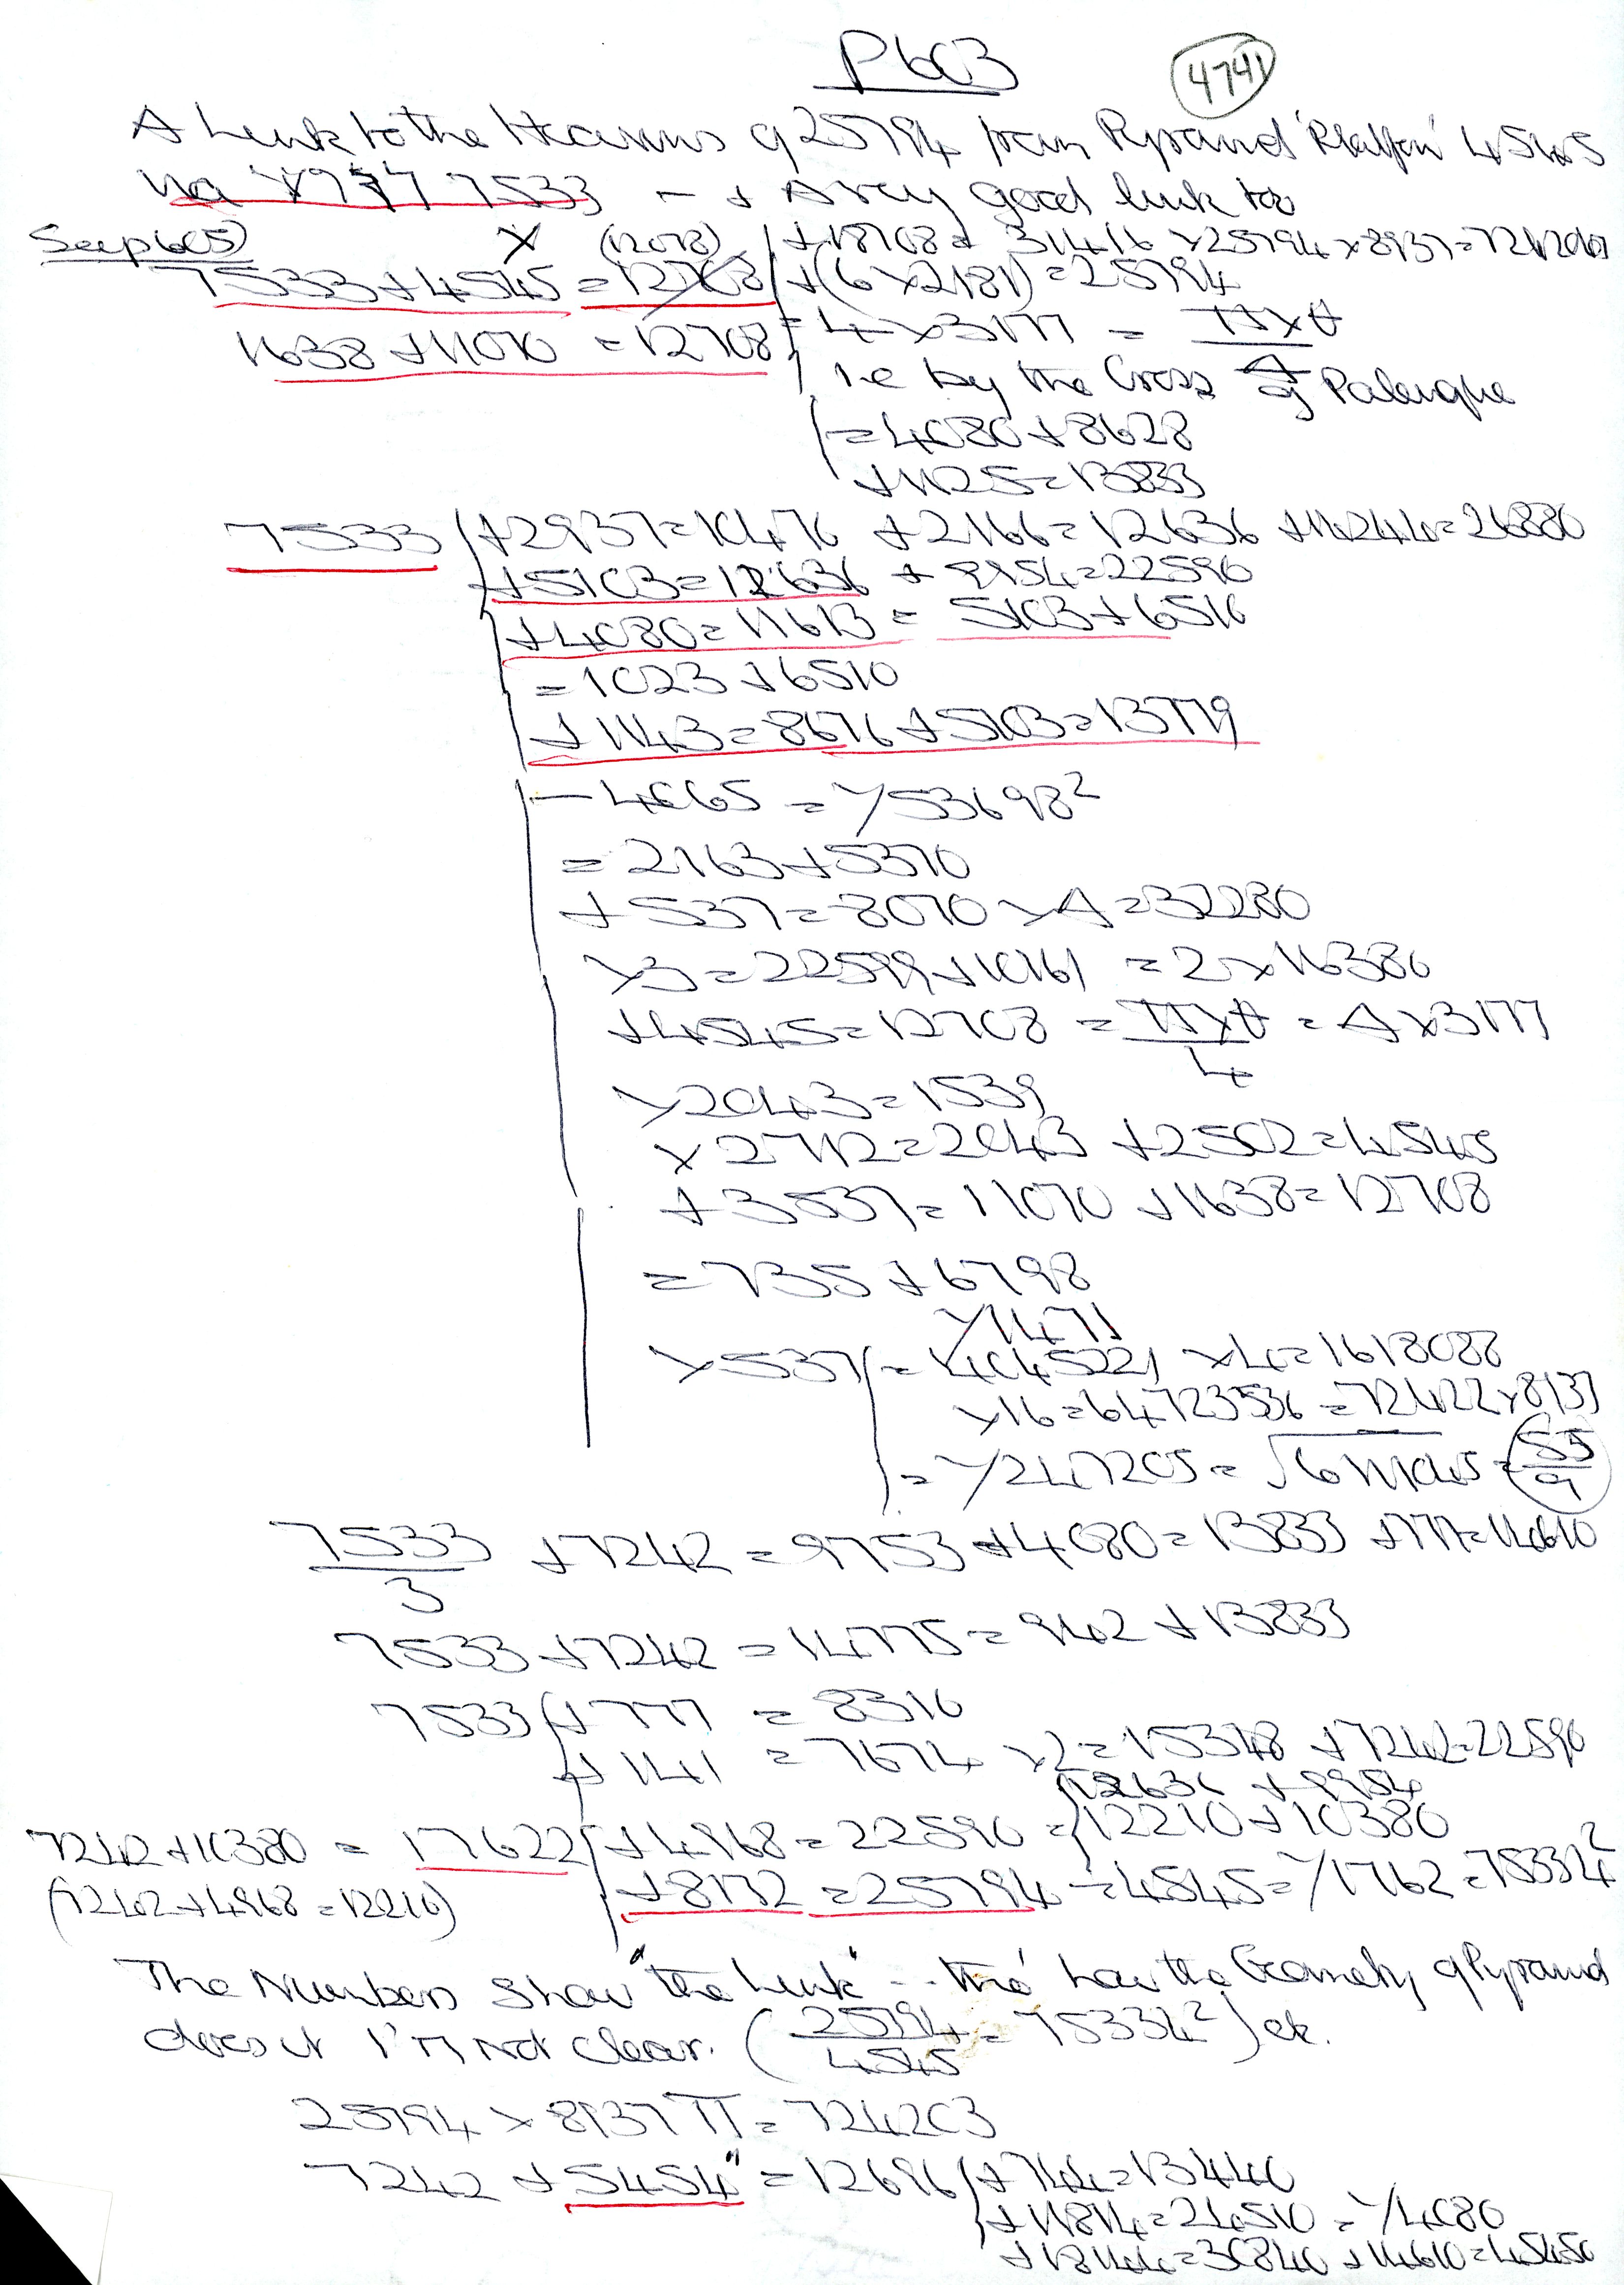 P603
4741
A Link to the Heavens of 25794 from Pyramid 'Platform' 4545
via 7533 - + A very good link too
See p605) X (12078) +18708 = 31416 × 25794 × 8937 = 7242
7533 + 4545 = 12708 + (6 × 2181) = 25794
1638 + 11070 = 12708 = 4 × 3177 = π × θ / 4
i.e by the Cross of Palenque
= 4080 + 8628
+ 1125 = 13833
7533 + 2937 = 10476 + 2166 = 12636 + 14244 = 26880
+ 5103 = 12636 + 9954 = 22590
+ 4080 = 11613 = 5103 + 6510
= 1023 + 6510
+ 1143 = 8676 + 5103 = 13779
- 4065 = Y 53698²
= 2163 + 5370
+ 537 = 8070 × 4 = 32280
× 3 = 22599 + 10161 = 2 × 16380
+ 4545 = 12708 = π × θ / 4 = 4 × 3177
Y 2043 = 1539
× 2712 = 2043 + 2502 = 4545
+ 3537 = 11070 + 1638 = 12708
= 735 + 6798
Y 1471
× 537 = 4045221 × 4 = 1618088
× 16 = 64723536 = 72422 × 8937
= Y 247205 = √6
7533 / 3 + 7242 = 9753 + 4080 = 13833 + 777 = 14610
7533 + 7242 = 14775 = 942 + 13833
7533 + 777 = 8310
+ 141 = 7674 × 2 = 15348 + 7242 = 22590
12636 + 9954
7242 + 10380 = 17622 + 4968 = 22590 = 12210 + 10380
(7242 + 4968 = 12210) + 8172 = 25794 ÷ 4545 = Y 1762 = 75334²
The Numbers show "the Link" -- tho' how the Geometry of Pyramid
does it I'm not clear. (25794 / 4545 = 75334²) etc.
25794 × 8937 π = 724203
7242 + 5454" = 12696 + 744 = 13440
+ 11814 = 24510 = Y 4080
+ 18144 = 30840 + 14610 = 45450